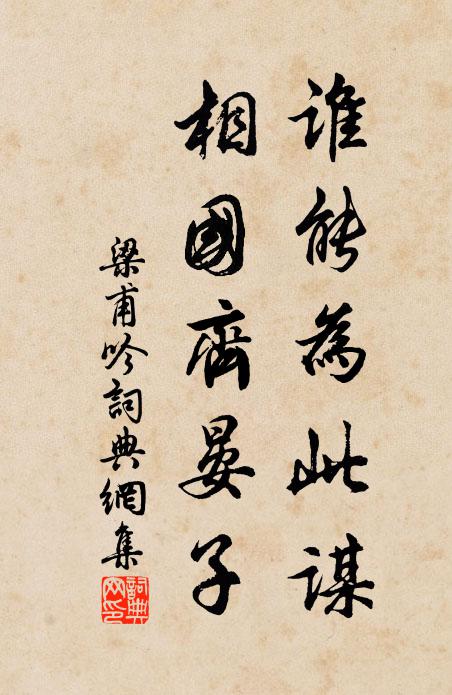 誰能為此謀
相國齊晏子
梁甫吟詞典網集
詞典
网印